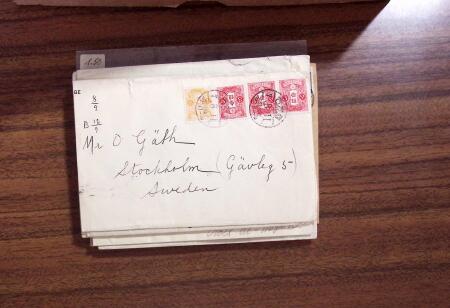 1.50
8/9
B 12/9
Mr O Gäth
Stockholm (Gävleg 5)
Sweden